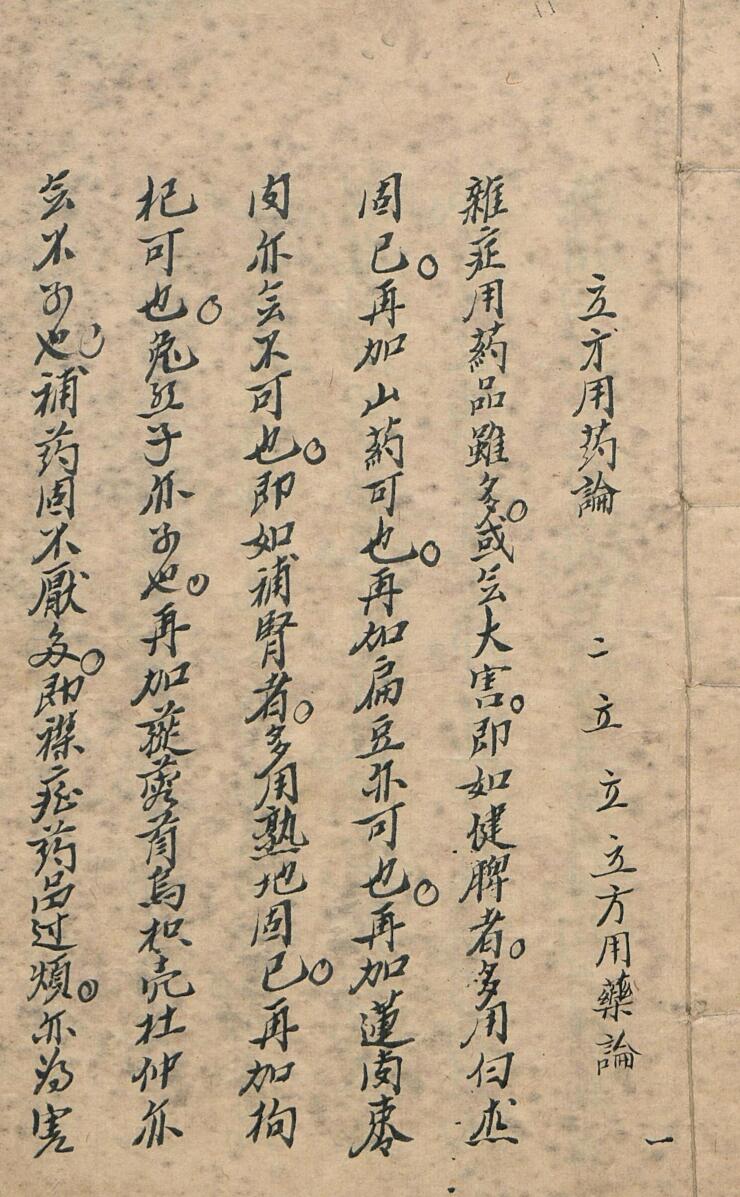 立方用药論　二　立　立　立方用藥論
一
雜症用葯品雖多。或无大害。即如健脾者。多用白朮
固已。再加山葯可也。再加扁豆亦可也。再加蓮肉枣
肉亦无不可也。即如補腎者。多用熟地固已。再加枸
杞可也。兔丝子亦可也。再加蓯蓉首烏枳壳杜仲亦
无不可也。補药固不厭多。即襍症药品过煩。亦为害